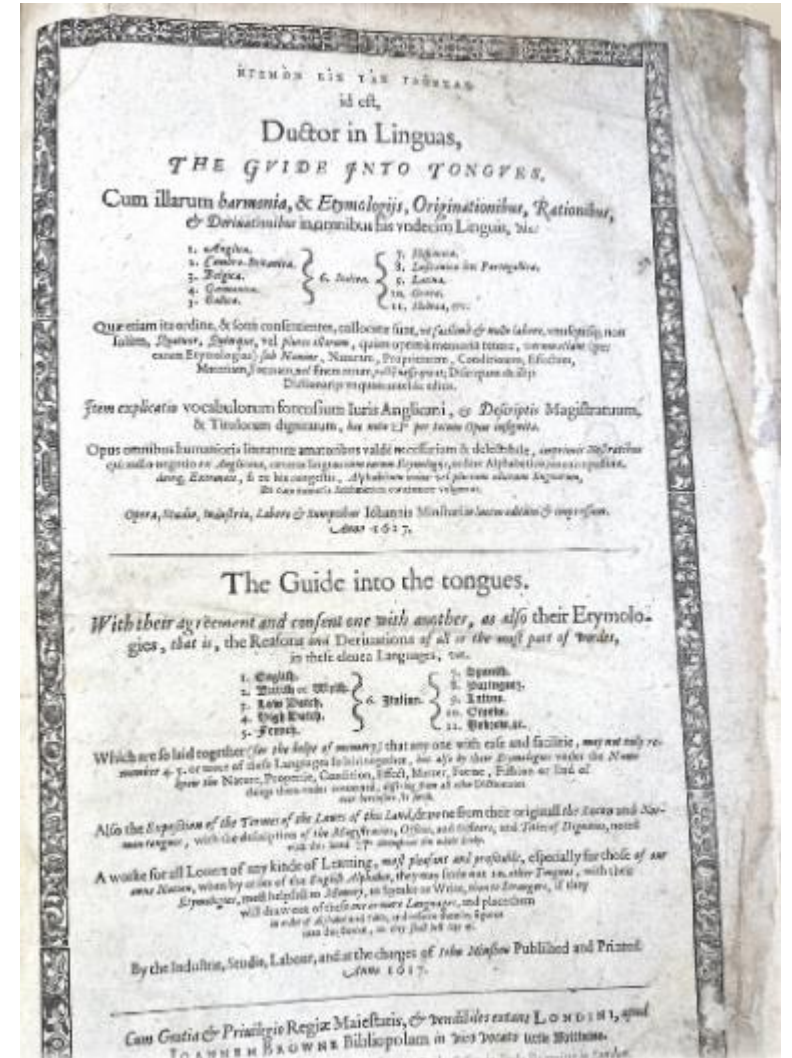 ἩΓΕΜῺΝ ΕἸΣ ΤᾺΣ ΓΛΩΣΣΑΣ
id est,
Ductor in Linguas,
THE GVIDE INTO TONGVES.
Cum illarum harmonia, & Etymologijs, Originationibus, Rationibus,
& Deriuationibus in omnibus his vndecim Linguis, viz:
1. Anglica.
2. Cambro-Britanica.
3. Belgica.
4. Germanica.
5. Gallica.
6. Italica.
7. Hispanica.
8. Lusitanica seu Portugallica.
9. Latina.
10. Græca.
11. Hebrea, etc.
Quæ etiam ita ordine, & sono consentientes, collocatæ sunt, vt facilimè & non labore, vnusquisq; non
solùm, Quatuor, Quinque, vel plures illarum, quàm optimè memoria tenere, verumetiam (per
earum Etymologias) sub Nomine, Naturam, Proprietatem, Conditionem, Effectum,
Materiam, Formam, vel finem rerum,
Dictionarijs
Item explicatio vocabulorum forensium Iuris Anglicani, & Descriptio Magistratuum,
& Titulorum dignitatum, hac nota per totum Opus insignita.
Opus omnibus humanioris literaturæ amatoribus valdè necessarium & delectabile, imprimis Nostratibus
Opera, Studio, Industria, Labore & Sumptibus Iohannis Minshæi in lucem editum & impressum.
Anno 1617.
The Guide into the tongues.
With their agreement and consent one with another, as also their Etymolo-
gies, that is, the Reasons and Deriuations of all or the most part of wordes,
in these eleuen Languages, viz.
1. English.
2. British or Welsh.
3. Low Dutch.
4. High Dutch.
5. French.
6. Italian.
7. Spanish.
8. Portuguez.
9. Latine.
10. Greeke.
11. Hebrew, &c.
Which are so laid together (for the helpe of memory) that any one with ease and facilitie, may not only re-
member 4. 5. or more of these Languages so laid together, but also by their Etymologies vnder the Name
know the Nature, Propertie, Condition, Effect, Matter, Forme, Fashion or End of
things there-vnder contayned, differing from all other Dictionaries
euer heretofore set forth.
Also the Exposition of the Termes of the Lawes of this Land, drawne from their originall the Saxon and Nor-
man tongues, with the description of the Magistracies, Offices, and Officers, and Titles of Dignities, noted
with this hand throughout the whole Booke.
A worke for all Louers of any kinde of Learning, most pleasant and profitable, especially for those of our
owne Nation, when by order of the English Alphabet, they may finde out 10. other Tongues, with their
Etymologies, most helpfull to Memory, to Speake or Write, then to Strangers, if they
will draw out of these one or more Languages, and place them
in order of Alphabet and Table, and
By the Industrie, Studie, Labour, and at the charges of Iohn Minsheu Published and Printed.
Anno 1617.
Cum Gratia & Priuilegio Regiæ Maiestatis, & vendibiles extant LONDINI, apud
IOANNEM BROWNE Bibliopolam in vico vocato little Brittaine.